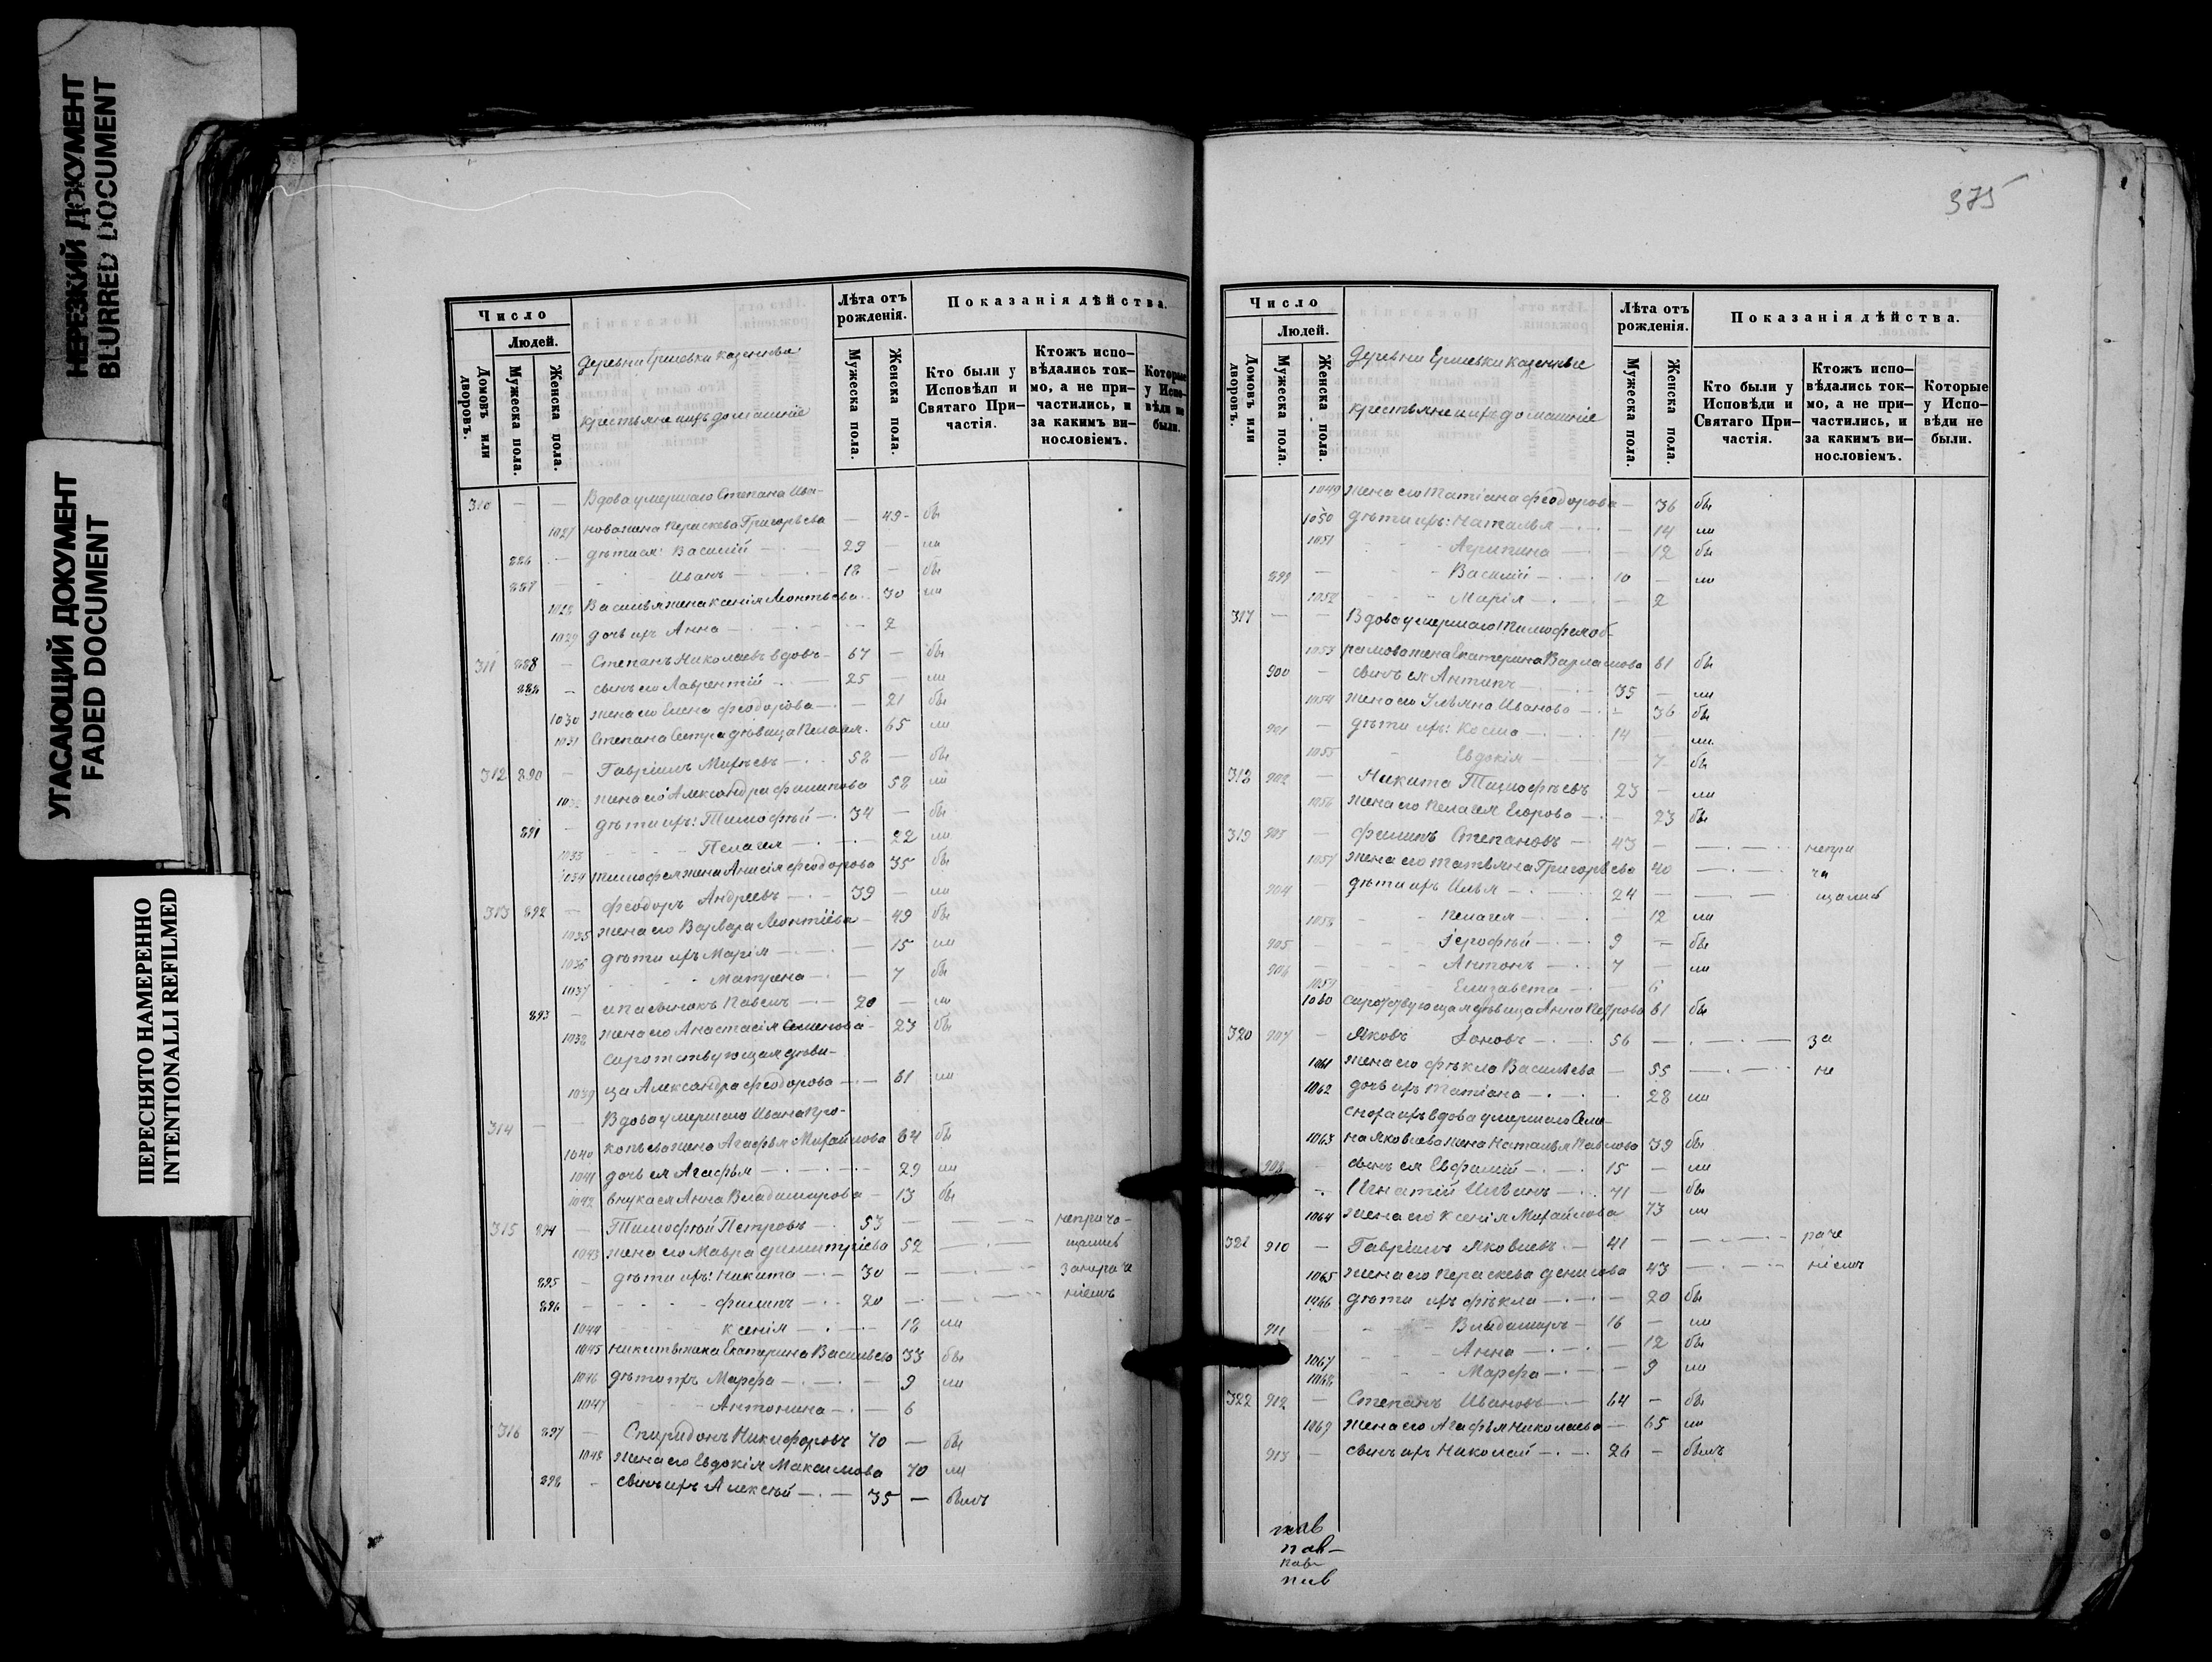 НЕРЕЗКИЙ ДОКУМЕНТ
BLURRED DOCUMENT
УГАСАЮЩИЙ ДОКУМЕНТ
FADED DOCUMENT
ПЕРЕСНЯТО НАМЕРЕННО
INTENTIONALLI REFILMED
Число
Людей.
Домовъ или дворовъ.
Мужеска пола.
Женска пола.
Деревни Ершевки казенные
крестьяне и ихъ домашніе
Лѣта отъ рожденія.
Мужеска пола.
Женска пола.
Показанія дѣйства.
Кто были у Исповѣди и Святаго Причастія.
Ктожъ исповѣдались токмо, а не причастились, и за какимъ винословіемъ.
Которые у Исповѣди не были.
310 — — Вдова умершаго Степана Ива-
1027 нова жена Параскева Григорьева — 49 бы
886 — дѣти ея: Василій — 29 — ли
887 — Иванъ — 18 — бы
1028 Василья жена Ксенія Леонтьева 30 ли
1029 дочь ихъ Анна — 2
311 888 — Степанъ Николаевъ вдовъ 67 — бы
889 — сынъ его Лаврентій — 25 — ли
1030 жена его Елена Феодорова — 21 бы
1031 Степана сестра дѣвица Пелагея 65 ли
312 890 — Гавріилъ 58 — бы
1032 жена его Александра Филипова 58 ли
891 — дѣти ихъ: Тимофѣй — 34 — бы
1033 Пелагея — 22 ли
1034 Тимофея жена Анисія Феодорова 35 бы
313 892 — Феодоръ Андреевъ — 39 — ли
1035 жена его Варвара Леонтіева — 49 бы
1036 дѣти ихъ Марія — 15 ли
1037 Матрена — 7 бы
893 — и пасынокъ Павелъ — 20 — ли
1038 жена его Анастасія Семенова — 23 бы
сиротствующая дѣви-
1039 ца Александра Феодорова — 61 ли
314 — — Вдова умершаго Ивана Про-
1040 копьева жена Агафья Михайлова 64 бы
1041 дочь ея Агафья — 29 ли
1042 внука ея Анна Владимирова — 13 бы
315 894 — Тимофѣй Петровъ — 53 — неприча-
1043 жена его Мавра Димитріева 52 — щались
895 — дѣти ихъ: Никита — 30 — за нераче
896 — Филипъ — 20 — ніемъ
1044 Ксенія — 18 ли
1045 Никиты жена Екатерина Васильева 33 бы
1046 дѣти ихъ Марфа — 9 ли
1047 Антонина — 6
316 897 — Спиридонъ Никифоровъ 70 — бы
1048 жена его Евдокія Максимова 70 ли
898 — сынъ ихъ Алексѣй — 35 — былъ
375
Число
Людей.
Домовъ или дворовъ.
Мужеска пола.
Женска пола.
Деревни Ершевки казенные
крестьяне и ихъ домашніе
Лѣта отъ рожденія.
Мужеска пола.
Женска пола.
Показанія дѣйства.
Кто были у Исповѣди и Святаго Причастія.
Ктожъ исповѣдались токмо, а не причастились, и за какимъ винословіемъ.
Которые у Исповѣди не были.
1049 жена его Татіана Феодорова — 36 бы
1050 дѣти ихъ: Наталья — 14 ли
1051 Агрипина — 12 бы
899 — Василій — 10 — ли
1052 Марія — 2
317 — — Вдова умершаго Тимофея
1053 жена Екатерина Варламова 61 бы
900 — сынъ ея Антипъ — 35 — ли
1054 жена его Ульяна Иванова — 36 бы
901 — дѣти ихъ: Косма — 14 — ли
1055 Евдокія — 7 бы
318 902 — Никита Тимофѣевъ 23 — ли
1056 жена его Пелагея Егорова — 23 бы
319 903 — Филипъ Степановъ — 43 — непри
1057 жена его Татьяна Григорьева 40 — ча
904 — дѣти ихъ Илья — 24 — щались
1058 Пелагея — 12 ли
905 — Іерофѣй — 9 — бы
906 — Антонъ — 7 — ли
1059 Елизавета — 6
1060 сиротствующая дѣвица Анна Петрова 61 бы
320 907 — Яковъ Іоновъ — 56 — за
1061 жена его Фекла Васильева — 55 — не
1062 дочь ихъ Татіана — 28 ли
сноха ихъ вдова умершаго Семе-
1063 на Яковлева жена Наталья Павлова 39 бы
908 — сынъ ея Евфимій — 15 — ли
Игнатій Ильинъ — 71 — бы
1064 жена его Ксенія Михайлова 73 ли
321 910 — Гавріилъ Яковлевъ — 41 — раче
1065 жена его Параскева Денисова 43 — ніемъ
1066 дѣти ихъ Фекла — 20 бы
911 — Владимиръ — 16 — ли
1067 Анна — 12 бы
1068 Марфа — 9 ли
322 912 — Степанъ Ивановъ — 64 — бы
1069 жена его Агафья Николаева — 65 ли
913 — сынъ ихъ Николай — 26 — былъ